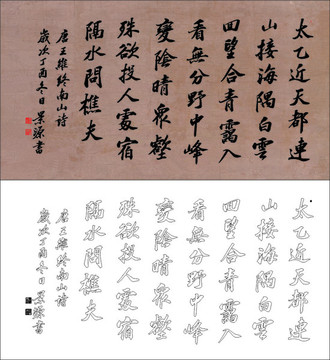 太乙近天都連
山接海隅白雲
回望合青靄入
看無分野中峰
變陰晴眾壑
殊欲投人處宿
隔水問樵夫
唐王維終南山詩
歲次丁酉冬日景源書
太乙近天都連
山接海隅白雲
回望合青靄入
看無分野中峰
變陰晴眾壑
殊欲投人處宿
隔水問樵夫
唐王維終南山詩
歲次丁酉冬日景源書